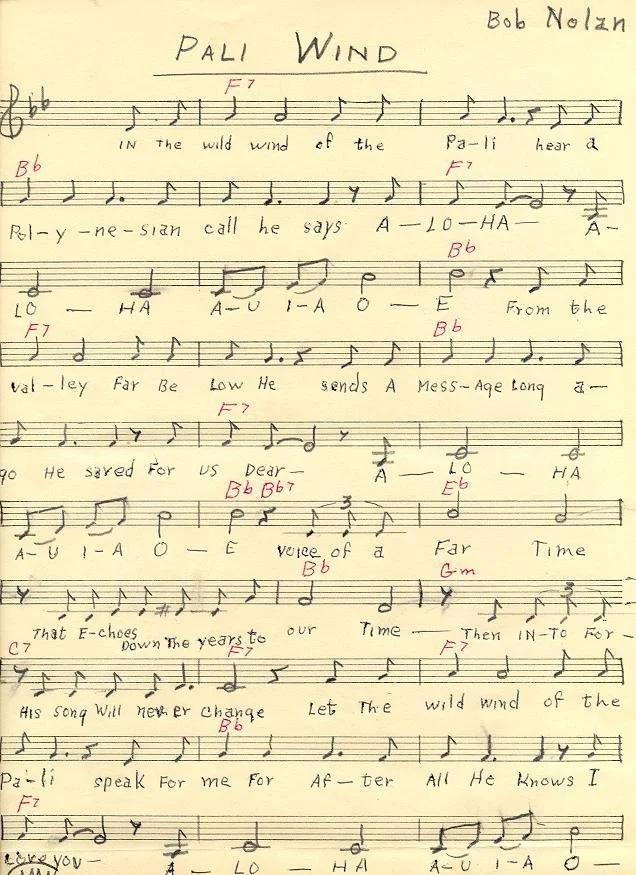 Bob Nolan
PALI WIND
F7
IN The wild wind of the Pa-li hear a
Bb F7
Pol-y-ne-sian call he says A-LO-HA- A-
Bb
LO - HA A-U I-A O - E From the
F7 Bb
val-ley Far Be Low He sends A Mess-Age Long a-
F7
go He saved For us Dear- A - LO - HA
Bb Bb7 Eb
A-U I-A O - E voice of a Far Time
3
Bb Gm
That E-choes Down The years to our Time - Then IN-TO For-
3
C7 F7 F7
His song Will never change Let The wild wind of the
Bb
Pa-li speak For me For Af-ter All He Knows I
F7
Love you- A - LO - HA A-U I-A O-